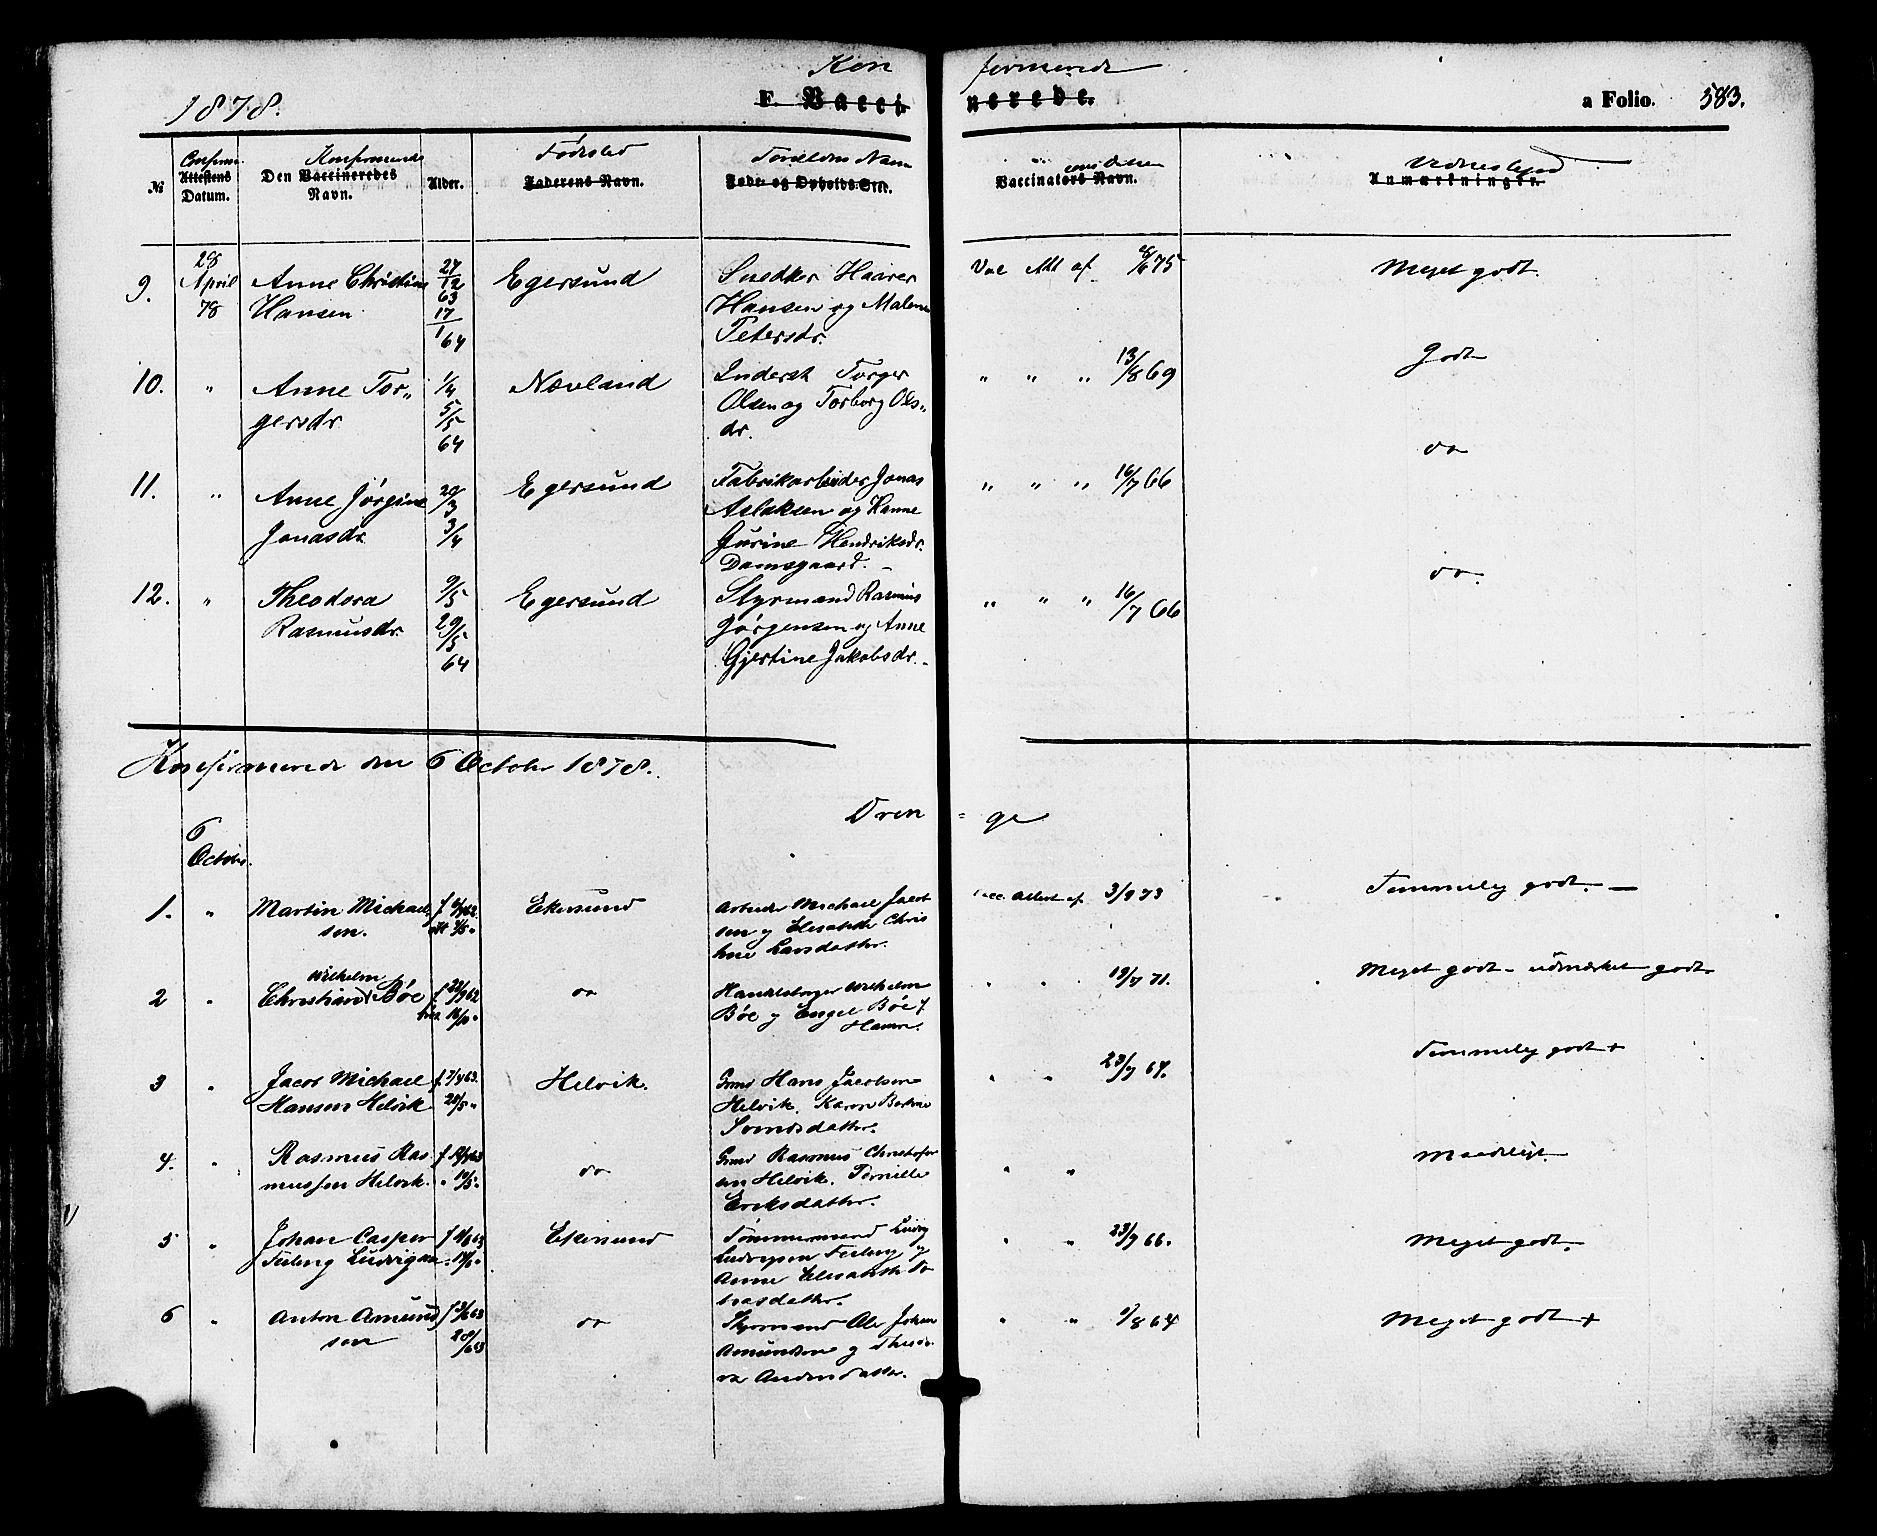 1878.
Kon firmerede
F. Vacci nerede.
a Folio. 583.
№
Confirm. Attestens Datum.
Konfirmerede
Den Vaccineredes Navn.
Alder.
Fødested
Faderens Navn.
Forældres Navn
Føde- og Opholds-Sted.
Vaccinators Navn.
Vidnesbyrd
Anmærkninger.
9.
28 April 78
Anne Christine
Hansen
27/12 63
17/1 64
Egersund
Snedker Haaver
Hansen og Malene
Petersdr.
Vac Att af
Meget godt.
10. " Anne Tor„
gersdr
1/4
5/5
64
Nævland
Inderst Torger
Olsen og Torborg Ols„
dr.
" " " 13/8 69
Godt
11. " Anne Jørgine
Jonasdr
20/3
3/4
Egersund
Fabrikarbeider Jonas
Aslaksen og Hanne
Gurine Hendriksdr.
Damsgaard. -
" " " 16/7 66
do
12. " Theodora
Rasmusdr.
9/5
29/5
64
Egersund
Styrmand Rasmus
Jørgensen og Anne
Gjertine Jakobsdr. -
" " " 16/7 66
do.
Konfirmerede den 6 October 1878.
Dren = ge
6
October.
1. " Martin Michael
sen.
Ekersund
Arbeider Michael Jacob
sen og Elisabeth Chris
tine Larsdatter.
Vacc. Attest af 3/9 73
Temmelig godt. —
2 " Christian Wilhelm Bøe
f. 22/9 62
16/10 "
do
Handelsborger Wilhelm
Bøe og Engel Bøe f.
" " 19/7 71.
Meget godt - udmærket godt.
3 " Jacob Michael
Hansen Helvik
f. 7/4 63.
25/5 "
Helvik.
Gmd Hans Jacobsen
Helvik. Karen Bertine
" " 23/7 67.
Temmelig godt +
4. " Rasmus Ras
mussen Helvik.
do
Gmd Rasmus Christofer
sen Helvik. Pernille
Eriksdatter.
" "
Maadeligt.
5 " Johan Casper
Feyling Ludvigsen
Ekersund
Tømmermand Ludvig
Ludvigsen Feyling og
Anne Elisabeth To
biasdatter.
" " 23/7 66.
Meget godt.
6 " Anton Amund
sen
28/6 63
do
Styrmand Ole Johan
Amundsen og Theodo
ra Andersdatter.
" " 1/8 64
Meget godt +